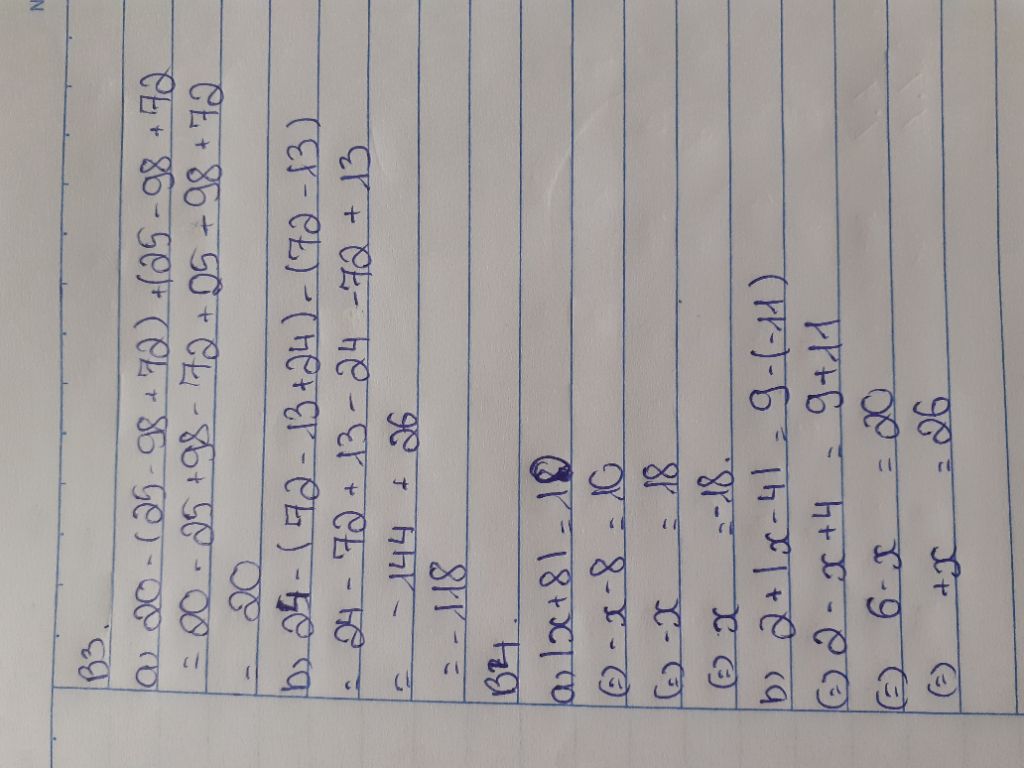 B3.
a) 20 - (25 - 98 + 72) + (25 - 98 + 72
= 20 - 25 + 98 - 72 + 25 + 98 + 72
= 20
b) 24 - (72 - 13 + 24) - (72 - 13)
= 24 - 72 + 13 - 24 - 72 + 13
= - 144 + 26
= - 118
B4.
a) |x + 8| = 10
(=) - x - 8 = 10
(=) - x = 18
(=) x = -18.
b) 2 + |x - 4| = 9 - (-11)
(=) 2 - x + 4 = 9 + 11
(=) 6 - x = 20
(=) +x = 26